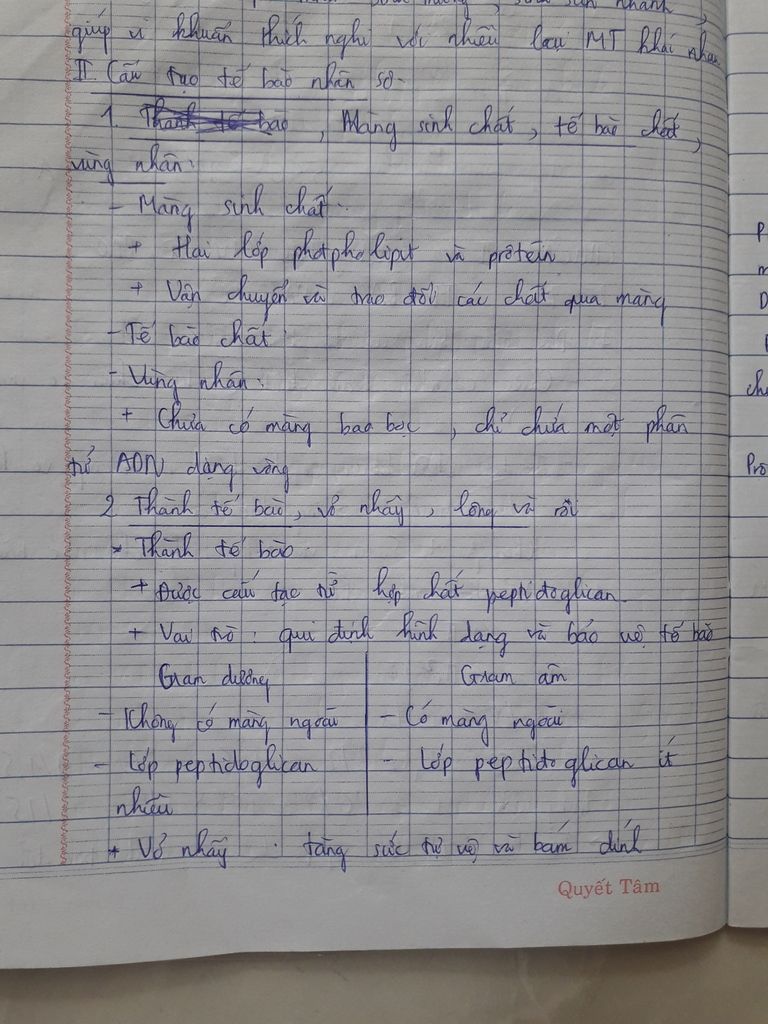 giúp vi khuẩn thích nghi với nhiều loại MT khác nhau
II. Cấu tạo tế bào nhân sơ.
1. Thành tế bào, Màng sinh chất, tế bào chất,
vùng nhân:
- Màng sinh chất:
+ Hai lớp photpholipit và prôtêin
+ Vận chuyển và trao đổi các chất qua màng
- Tế bào chất:
- Vùng nhân:
+ Chưa có màng bao bọc, chỉ chứa một phân
tử ADN dạng vòng
2. Thành tế bào, vỏ nhầy, lông và roi
* Thành tế bào.
+ Được cấu tạo từ hợp chất peptidoglican.
+ Vai trò: qui định hình dạng và bảo vệ tế bào
Gram dương Gram âm
- Không có màng ngoài - Có màng ngoài
- Lớp peptidoglican - Lớp peptidoglican ít
nhiều
* Vỏ nhầy: tăng sức tự vệ và bám dính
Quyết Tâm